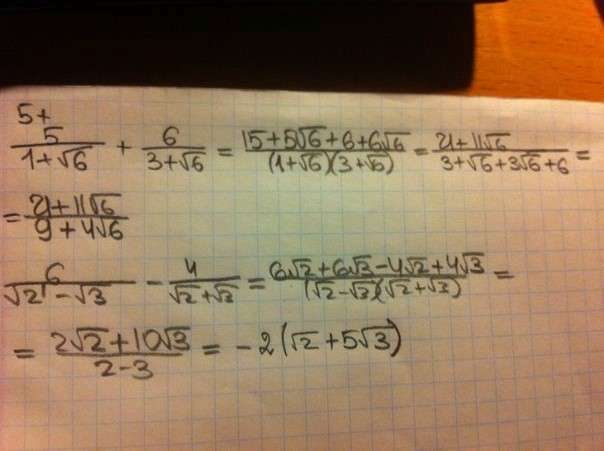 5+
5/(1+√6) + 6/(3+√6) = (15+5√6+6+6√6)/((1+√6)(3+√6)) = (21+11√6)/(3+√6+3√6+6) =
= (21+11√6)/(9+4√6)
6/(√2-√3) - 4/(√2+√3) = (6√2+6√3-4√2+4√3)/((√2-√3)(√2+√3)) =
= (2√2+10√3)/(2-3) = -2(√2+5√3)